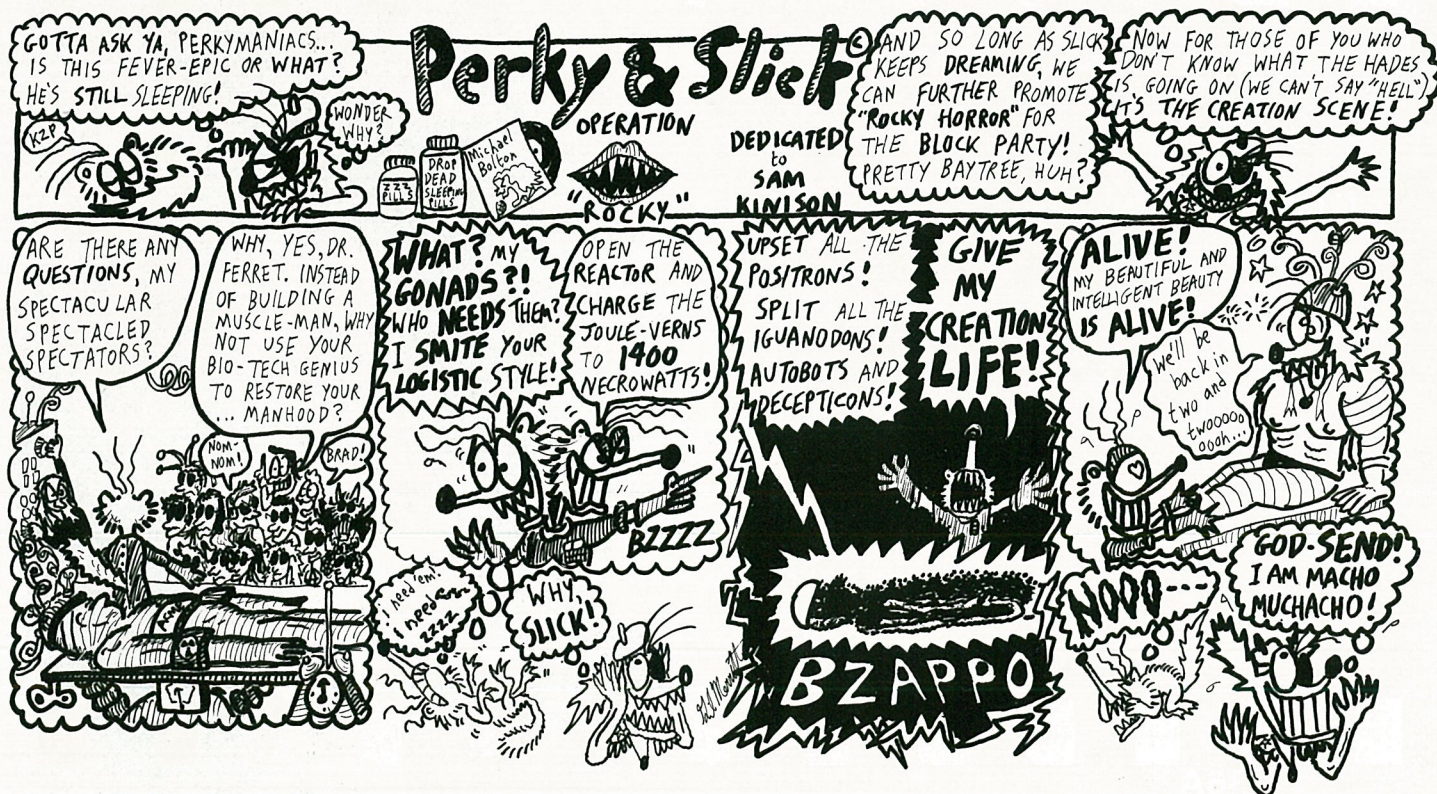 GOTTA ASK YA, PERKYMANIACS...
IS THIS FEVER-EPIC OR WHAT?
HE'S STILL SLEEPING!
KZP
WONDER
WHY?
Perky & Slick ©
OPERATION
"ROCKY"
ZZZ
PILLS
DROP
DEAD
SLEEPING
PILLS
Michael
Bolton
DEDICATED
to
SAM
KINISON
AND SO LONG AS SLICK
KEEPS DREAMING, WE
CAN FURTHER PROMOTE
"ROCKY HORROR" FOR
THE BLOCK PARTY!
PRETTY BAYTREE, HUH?
NOW FOR THOSE OF YOU WHO
DON'T KNOW WHAT THE HADES
IS GOING ON (WE CAN'T SAY "HELL")
IT'S THE CREATION SCENE!
ARE THERE ANY
QUESTIONS, MY
SPECTACULAR
SPECTACLED
SPECTATORS?
WHY, YES, DR.
FERRET. INSTEAD
OF BUILDING A
MUSCLE-MAN, WHY
NOT USE YOUR
BIO-TECH GENIUS
TO RESTORE YOUR
... MANHOOD?
NOM-
NOM!
BRAD!
WHAT? MY
GONADS?!
WHO NEEDS THEM?
I SMITE YOUR
LOGISTIC STYLE!
OPEN THE
REACTOR AND
CHARGE THE
JOULE-VERNS
TO 1400
NECROWATTS!
BZZZZ
I need 'em!
I need em
zzzz
WHY,
SLICK!
UPSET ALL THE
POSITRONS!
SPLIT ALL THE
IGUANODONS!
AUTOBOTS AND
DECEPTICONS!
GIVE
MY
CREATION
LIFE!
BZAPPO
ALIVE!
MY BEAUTIFUL AND
INTELLIGENT BEAUTY
IS ALIVE!
We'll be
back in
two and
twooooo
oooh...
NOOO---
GOD-SEND!
I AM MACHO
MUCHACHO!